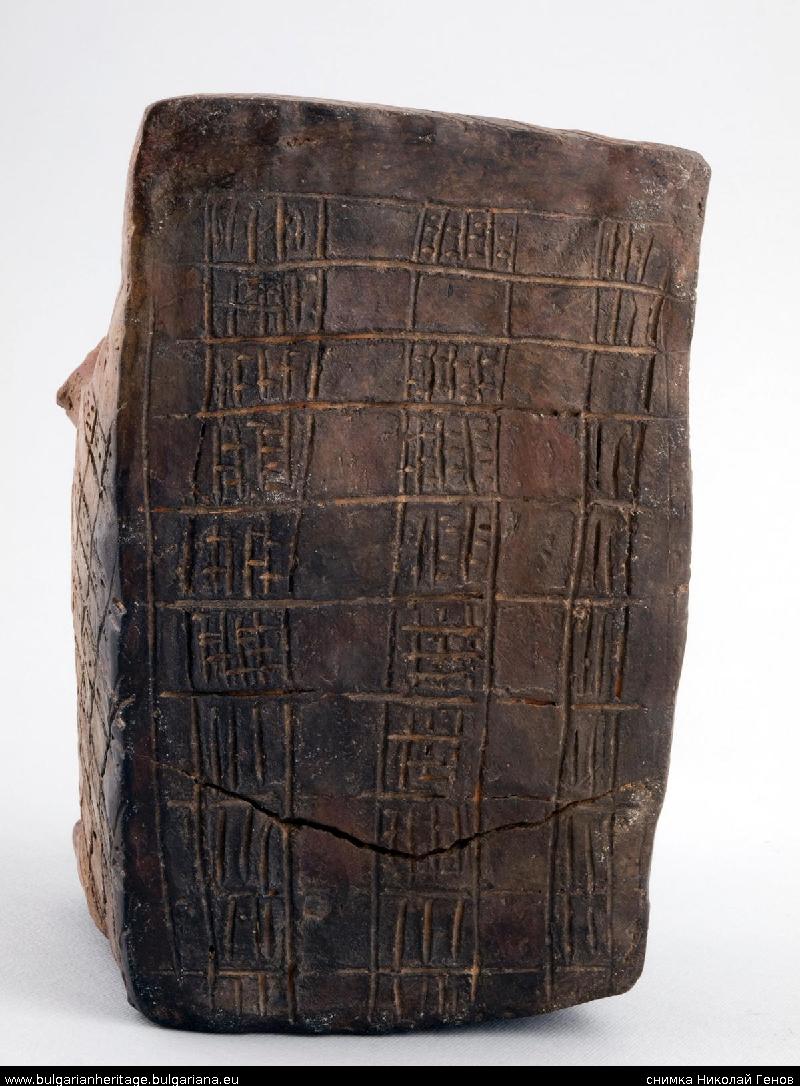 www.bulgarianheritage.bulgariana.eu
снимка Николай Генов